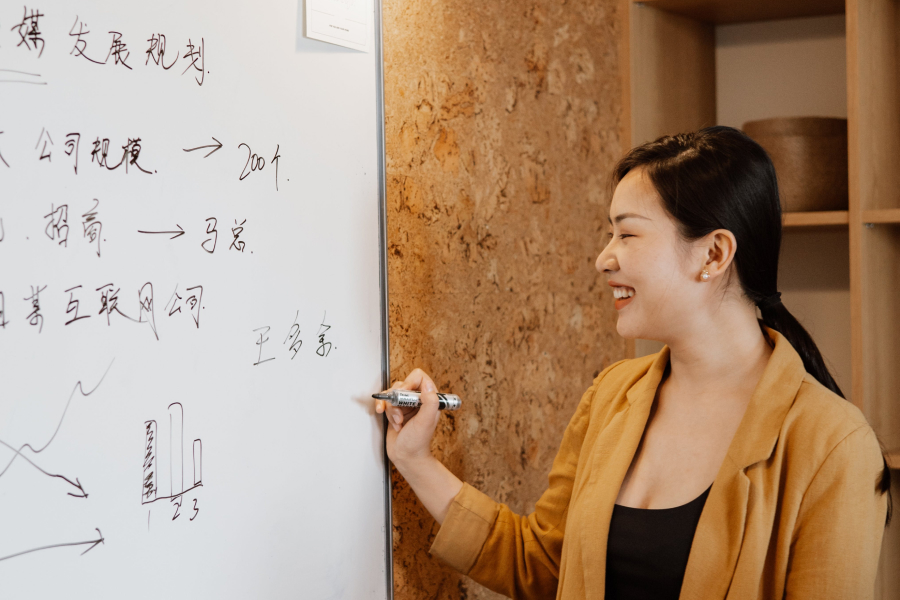 媒 发展规划.
公司规模. → 200个.
. 招商. → 马总.
某互联网公司.
王多余.
1 2 3